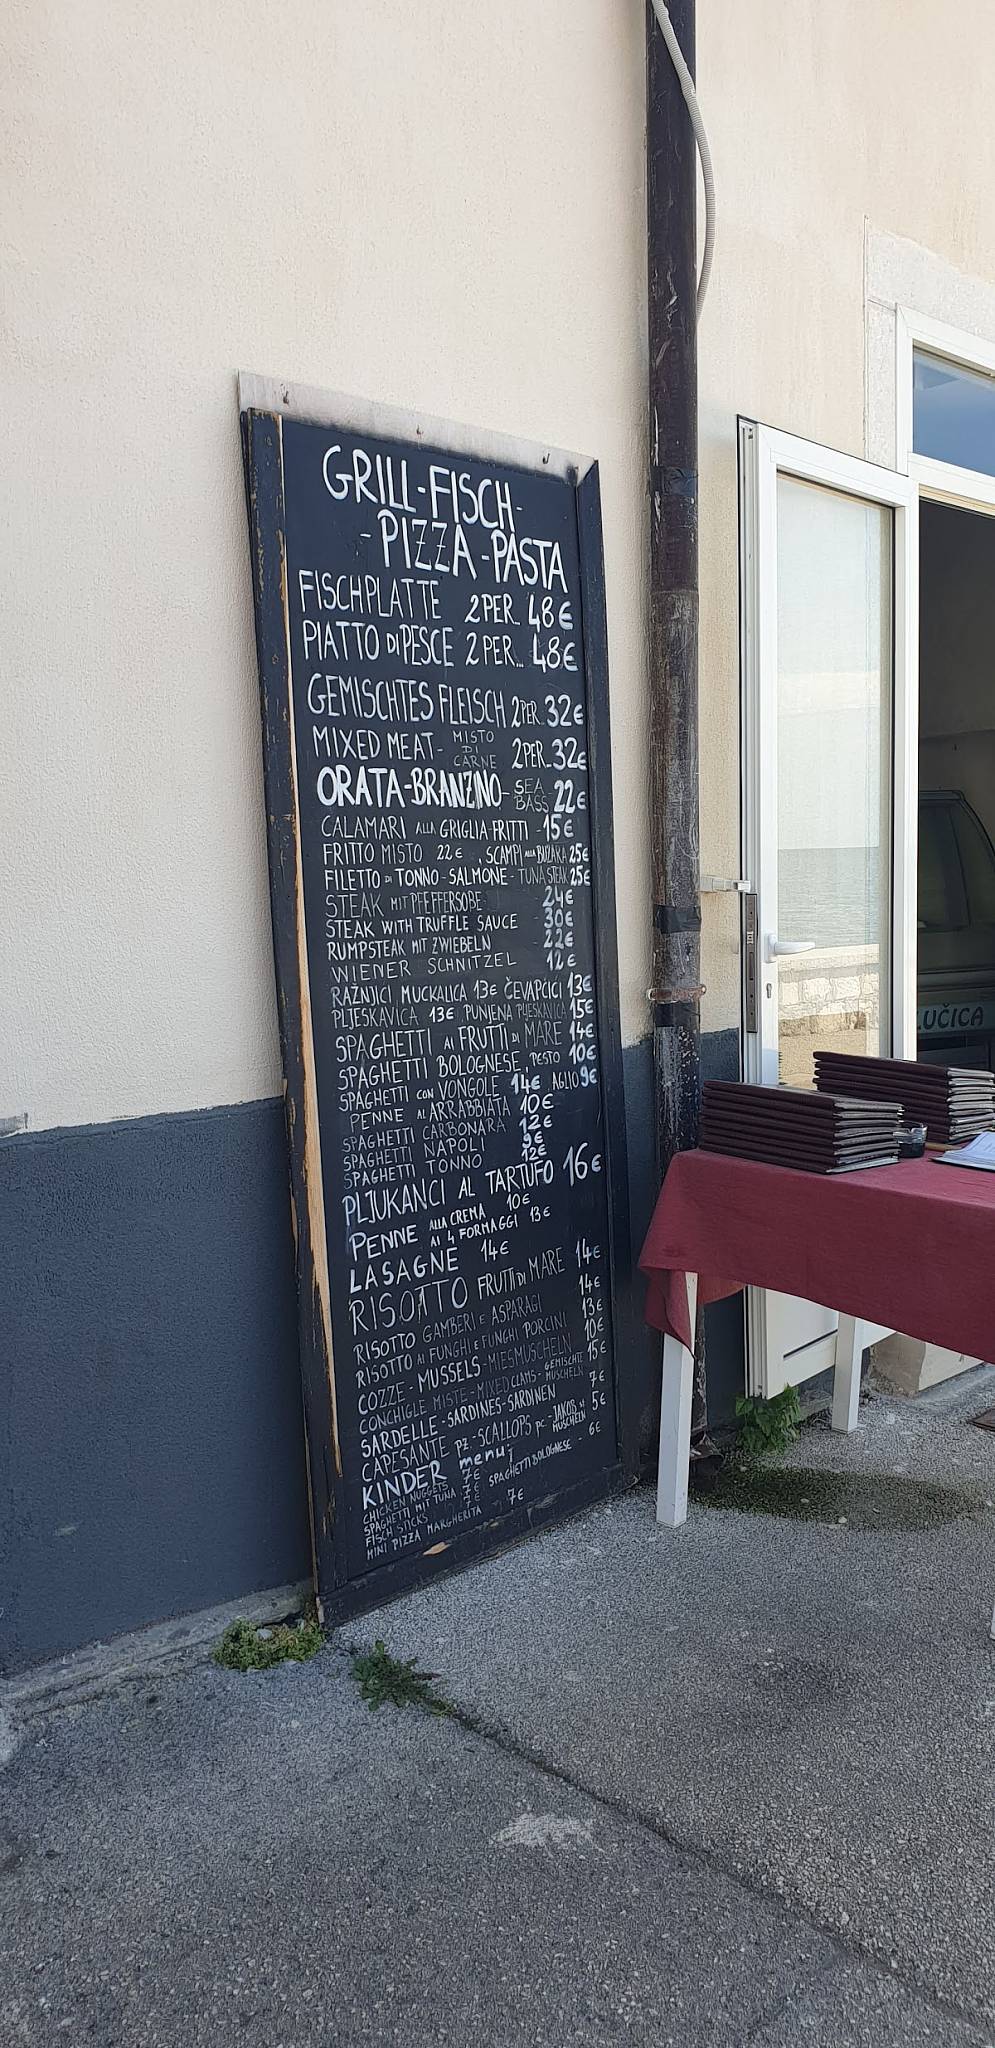 GRILL-FISCH-
-PIZZA-PASTA
FISCHPLATTE 2 PER.. 48€
PIATTO DI PESCE 2 PER... 48€
GEMISCHTES FLEISCH 2 PER. 32€
MIXED MEAT- MISTO DI CARNE 2 PER.. 32€
ORATA-BRANZINO- SEA BASS 22€
CALAMARI ALLA GRIGLIA-FRITTI -15€
FRITTO MISTO 22€ , SCAMPI ALLA BUZARA 25€
FILETTO DI TONNO-SALMONE-TUNA STEAK 25€
STEAK MIT PFEFFERSOBE 24€
STEAK WITH TRUFFLE SAUCE - 30€
RUMPSTEAK MIT ZWIEBELN - 22€
WIENER SCHNITZEL 12€
RAŽNJICI MUCKALICA 13€ ČEVAPČICI 13€
PLJESKAVICA 13€ PUNJENA PLJESKAVICA 15€
SPAGHETTI AI FRUTTI DI MARE 14€
SPAGHETTI BOLOGNESE, PESTO 10€
SPAGHETTI CON VONGOLE 14€ AGLIO 9€
PENNE AL ARRABBIATA 10€
SPAGHETTI CARBONARA 12€
SPAGHETTI NAPOLI 9€
SPAGHETTI TONNO 12€
PLJUKANCI AL TARTUFO 16€
PENNE ALLA CREMA 10€
AI 4 FORMAGGI 13€
LASAGNE 14€
RISOTTO FRUTTI DI MARE 14€
RISOTTO GAMBERI E ASPARAGI 14€
RISOTTO AI FUNGHI E FUNGHI PORCINI 13€
COZZE-MUSSELS-MIESMUSCHELN 10€
CONCHIGLE MISTE-MIXED CLAMS-GEMISCHTE MUSCHELN 15€
SARDELLE-SARDINES-SARDINEN 7€
CAPESANTE PZ.-SCALLOPS PC-JAKOBSMUSCHELN 5€
KINDER menu:
CHICKEN NUGGETS 7€ SPAGHETTI BOLOGNESE - 6€
SPAGHETTI MIT TUNA 7€
FISCH STICKS 7€
MINI PIZZA MARGHERITA 7€
LUČICA